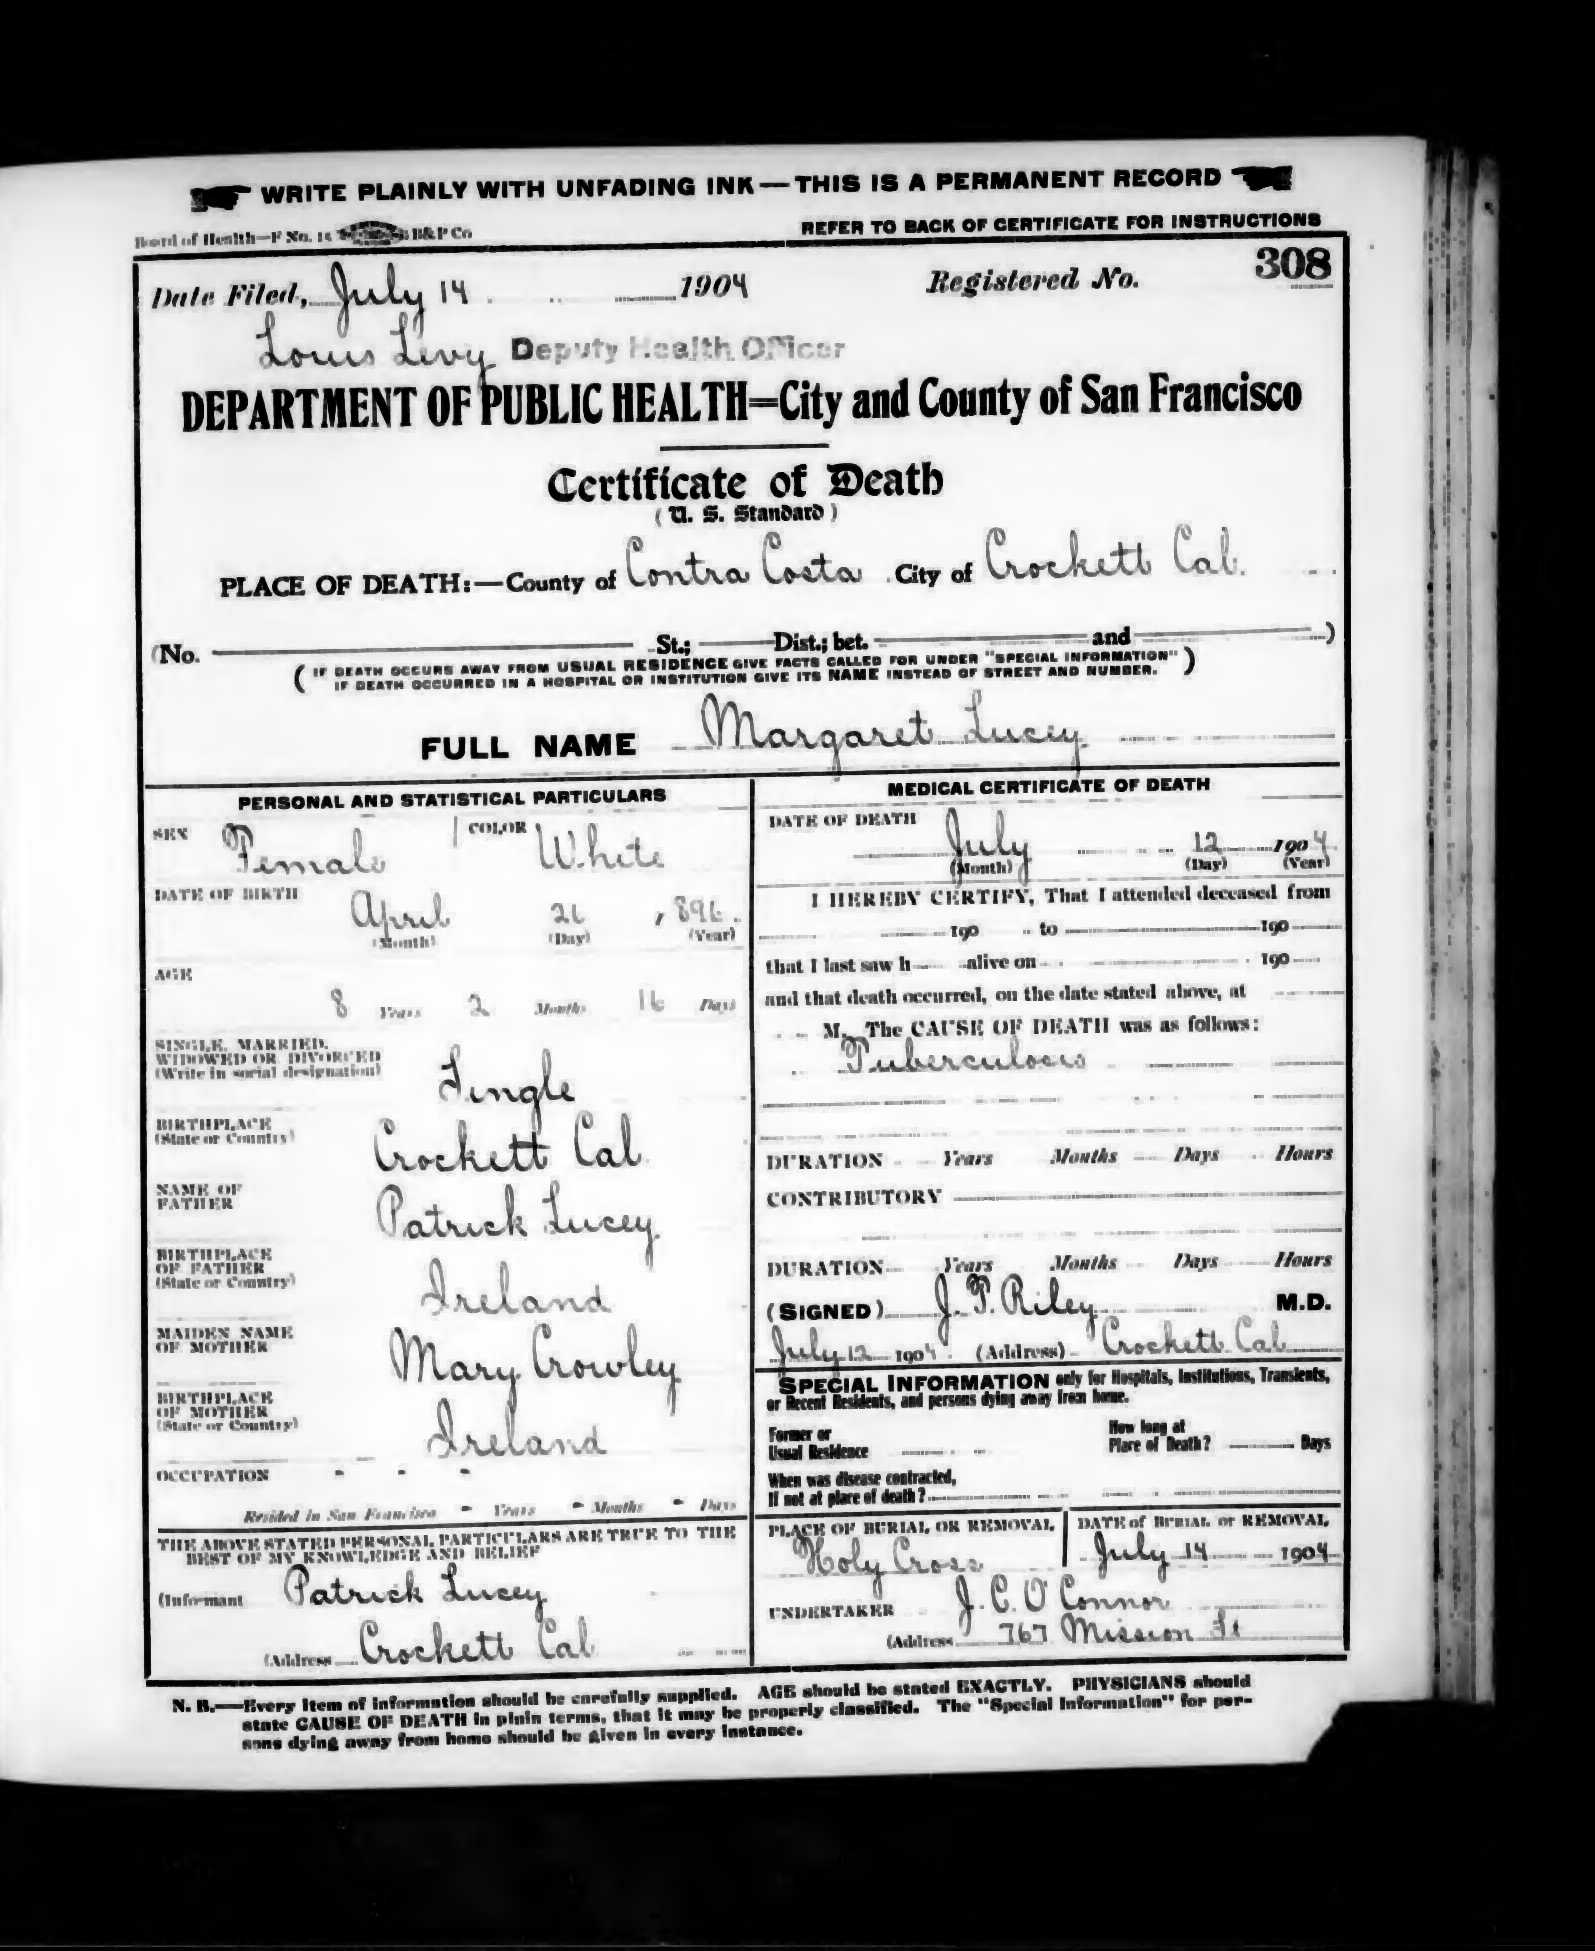 WRITE PLAINLY WITH UNFADING INK—THIS IS A PERMANENT RECORD
Board of Health—F No. 15 B&P Co
REFER TO BACK OF CERTIFICATE FOR INSTRUCTIONS
Date Filed, July 14 1904 Registered No. 308
Louis Levy Deputy Health Officer
DEPARTMENT OF PUBLIC HEALTH=City and County of San Francisco
Certificate of Death
(U. S. Standard)
PLACE OF DEATH:—County of Contra Costa City of Crockett Cal.
(No. St.; Dist.; bet. and )
(IF DEATH OCCURS AWAY FROM USUAL RESIDENCE GIVE FACTS CALLED FOR UNDER "SPECIAL INFORMATION"
IF DEATH OCCURRED IN A HOSPITAL OR INSTITUTION GIVE ITS NAME INSTEAD OF STREET AND NUMBER.)
FULL NAME Margaret Lucey
PERSONAL AND STATISTICAL PARTICULARS
SEX Female COLOR White
DATE OF BIRTH
April 26, 1896.
(Month) (Day) (Year)
AGE
8 Years 2 Months 16 Days
SINGLE, MARRIED,
WIDOWED OR DIVORCED
(Write in social designation)
Single
BIRTHPLACE
(State or Country)
Crockett Cal
NAME OF
FATHER
Patrick Lucey
BIRTHPLACE
OF FATHER
(State or Country)
Ireland
MAIDEN NAME
OF MOTHER
Mary Crowley
BIRTHPLACE
OF MOTHER
(State or Country)
Ireland
OCCUPATION - - -
Resided in San Francisco - Years - Months - Days
THE ABOVE STATED PERSONAL PARTICULARS ARE TRUE TO THE
BEST OF MY KNOWLEDGE AND BELIEF
(Informant Patrick Lucey
(Address Crockett Cal
MEDICAL CERTIFICATE OF DEATH
DATE OF DEATH
July 12 1904
(Month) (Day) (Year)
I HEREBY CERTIFY, That I attended deceased from
190 to 190
that I last saw h alive on 190
and that death occurred, on the date stated above, at
M. The CAUSE OF DEATH was as follows:
Tuberculosis
DURATION Years Months Days Hours
CONTRIBUTORY
DURATION Years Months Days Hours
(SIGNED) J. P. Riley M.D.
July 12 1904. (Address) Crockett Cal
SPECIAL INFORMATION only for Hospitals, Institutions, Transients,
or Recent Residents, and persons dying away from home.
Former or
Usual Residence
How long at
Place of Death? Days
When was disease contracted,
If not at place of death?
PLACE OF BURIAL OR REMOVAL
Holy Cross
DATE of BURIAL or REMOVAL
July 14 1904
UNDERTAKER J. C. O'Connor
(Address 767 Mission St
N. B.—Every item of information should be carefully supplied. AGE should be stated EXACTLY. PHYSICIANS should
state CAUSE OF DEATH in plain terms, that it may be properly classified. The "Special Information" for per-
sons dying away from home should be given in every instance.